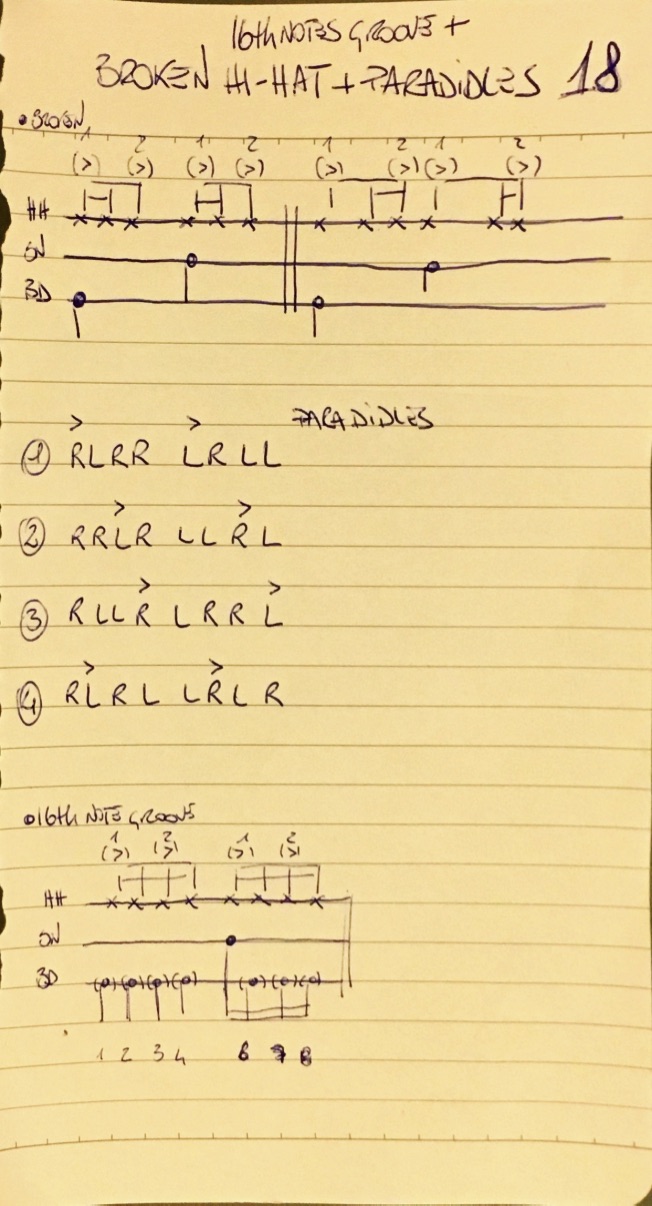 16th NOTES GROOVE +
BROKEN HI-HAT + PARADIDLES 18
• BROKEN
1 2 1 2 1 2 1 2
(>) (>) (>) (>) (>) (>) (>) (>)
HH
SN
BD
PARADIDLES
> >
① RLRR LRLL
> >
② RRLR LLRL
> >
③ RLLR LRRL
> >
④ RLRL LRLR
• 16th NOTE GROOVE
1 2 1 2
(>) (>) (>) (>)
HH
SN
BD
1 2 3 4 6 7 8